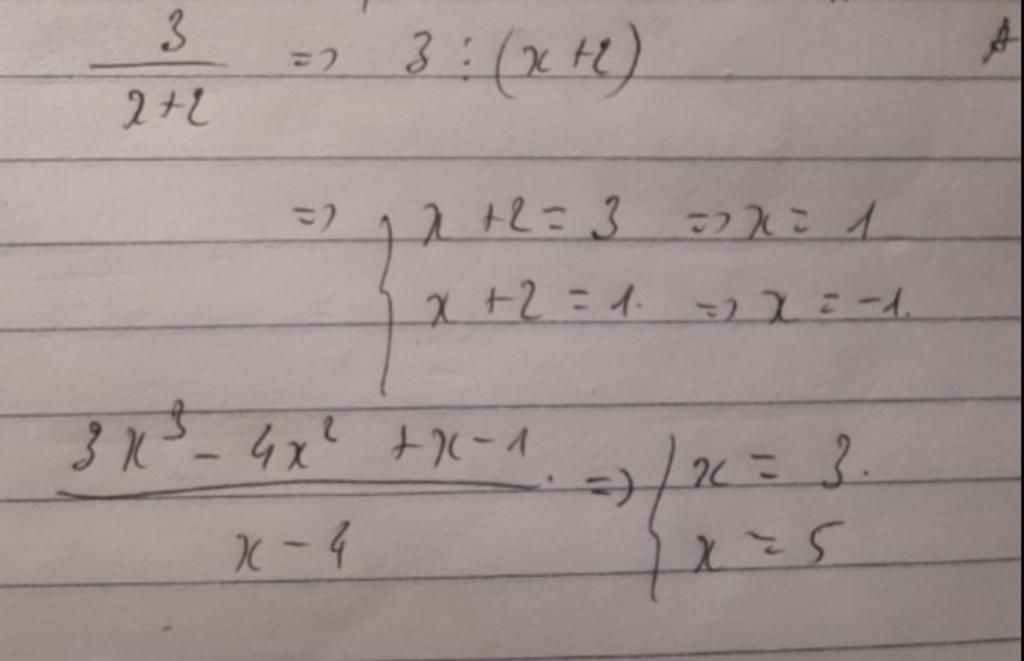 3/(x+2) => 3 ⋮ (x+2)
=> { x+2 = 3 => x = 1
x+2 = 1. => x = -1.
(3x³ - 4x² + x - 1)/(x - 4). => { x = 3.
x = 5